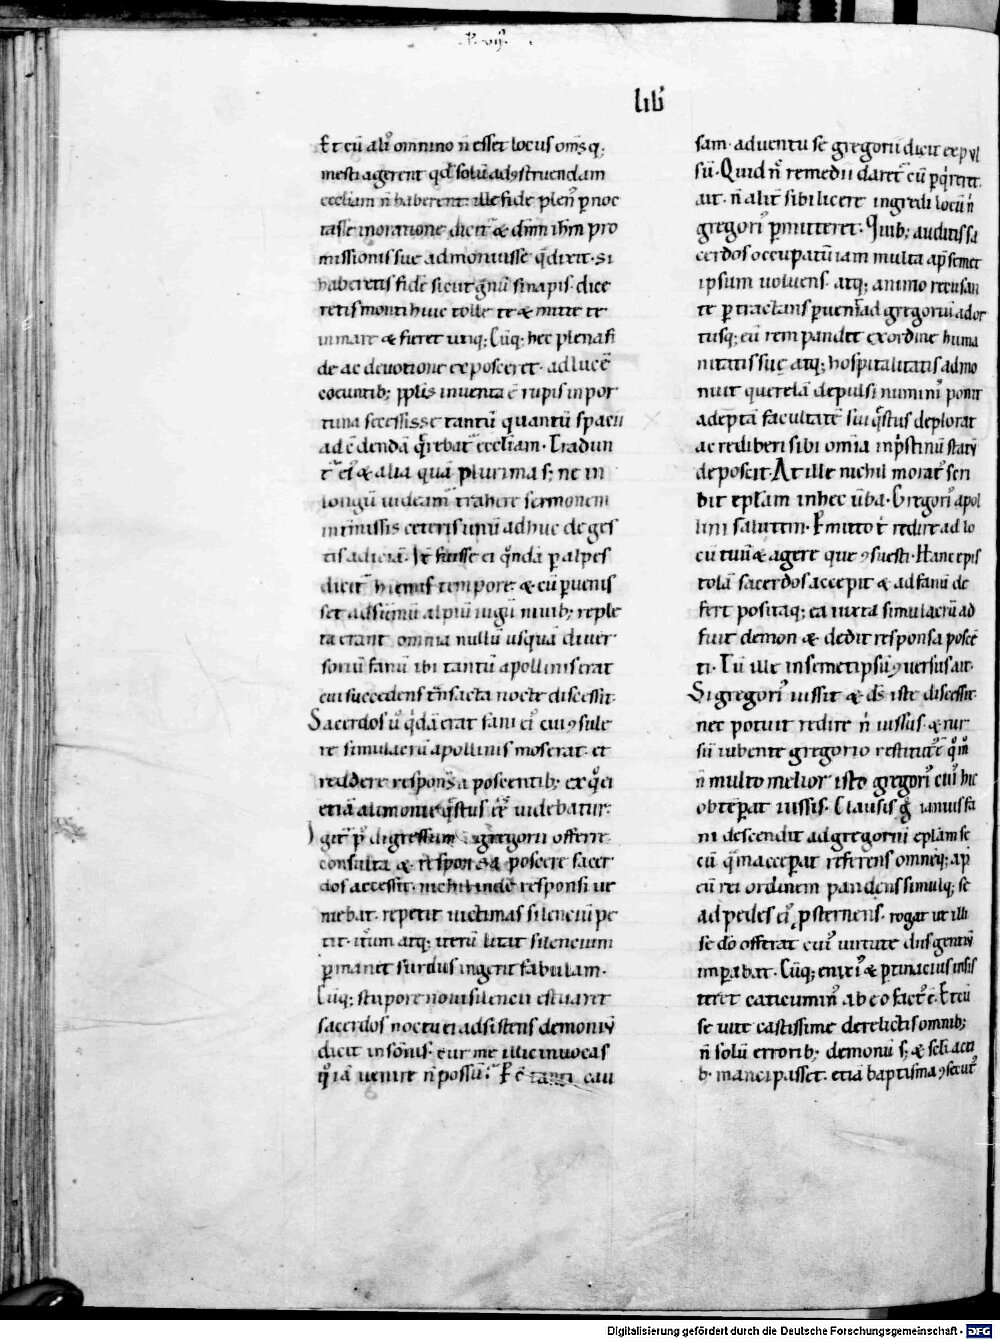 lib̄
Et cū aliꝰ omnino n̄ esset locus om̄sq;
mesti agerent qd̓ solū adꝯstruendam
eccl̄iam n̄ haberent: ille fide plenꝰ ꝑnoc
tasse in oratione dicit̄ & dn̄m ihm̄ pro
missionis sue admonuisse q̄ dixit· Si
haberetis fidē sicut gᷓnū sinapis· dice
retis monti huic tolle te & mitte te
in mare & fieret utiq; Cūq; hec plena fi
de ac deuotione exposceret· ad lucē
coeuntib; ppl̄is inuenta ē rupis inpor
tuna secessisse tantū quantū spacii
ad ꝯdendā q̄rebat̄ eccl̄iam· Tradun
t̄ eiꝰ & alia quā plurima s; ne in
longū uideam̄ trahere sermonem
intmissis ceteris unū adhuc de ges
tis adiciā· It̄ fuisse ei q̄ndā ꝑ alpes
dicit̄ hiemis tempore· & cū ꝑuenis
set ad sūmū alpiū iugū niuib; reple
ta erant omnia nullū usquā diuer
soriū fanū ibi tantū apollinis erat
cui succedens tn̄sacta nocte discessit·
Sacerdos ū̓ q̓dā erat fani eiꝰ cui ꝯsule
re simulacrū apollinis mos erat· et
reddere responsa poscentib; ex q̊ ei
etiā alimonie q̄stus ēē uidebatur·
Igit̄ p̓ digressum gregorii offerre
consulta & responsa poscere sacer
dos accessit· nichil inde responsi ue
niebat· repetit uictimas silenciū pe
tit· itūm atq; iterū litat silencium
ꝑmanet surdus ingerit fabulam·
Cūq; stupore noui silencii estuaret
sacerdos noctu ei adsistens demoniū
dicit in sōnis· cur me illic inuocas
q̊ iā uenire n̄ possū·
sam· aduentu se gregorii dicit expul
sū· Quid n̄ remedii daret̄ cū ꝑq̄reret
ait· n̄ alit̄ sibi licere ingredi locū n̄
gregoriꝰ ꝑmitteret· Quib; auditis sa
cerdos occupatū iam multa apd̓ semet
ipsum uoluens· atq; animo recusan
te ꝑtractans ꝑuenit̄ ad gregoriū ador
tusq; eū rem pandit ex ordine huma
nitatis suę atq; hospitalitatis admo
nuit querelā depulsi numinꝰ ponit
adeptā facultatē sui q̄stus deplorat
ac redibēri sibi omīa in p̓stinū statū
deposcit· At ille nichil morat̄ scri
bit epl̄am in hec ūba· Gregoriꝰ apol
lini salutem· Pmitto t̄ redire ad lo
cū tuū & agere que ꝯsuesti· Hanc epis
tolā sacerdos accepit & ad fanū de
fert positaq; ea iuxta simulacrū ad
fuit demon & dedit responsa poscē
ti· Tū ille in semetipsū ꝯuersus ait·
Si gregoriꝰ iussit & ds̄ iste discessit·
nec potuit redire n̄ iussus & rur
sū iubente gregorio restitutꝰ q̊m̊
n̄ multo melior isto gregoriꝰ cuiꝰ hic
obtēperat iussis· Clausis g̊ ianuis fa
ni descendit ad gregoriū epl̄am se
cū q̄m acceꝑat referens omnēq; ap̄
eū rei ordinem pandens simulq; se
ad pedes eiꝰ ꝓsternens· rogat ut illi
se dō offerat cuiꝰ uirtute diis gentiū
imꝑabat· Cūq; enixiꝰ & ꝑtinacius insis
teret caticuminꝰ ab eo factꝰ ē· Et cū
se uite castissime derelictis omnib;
n̄ solū errorib; demonū s; & scl̄i acti
b· mancipasset· etiā baptisma ꝯsecut̄
Digitalisierung gefördert durch die Deutsche Forschungsgemeinschaft - DFG